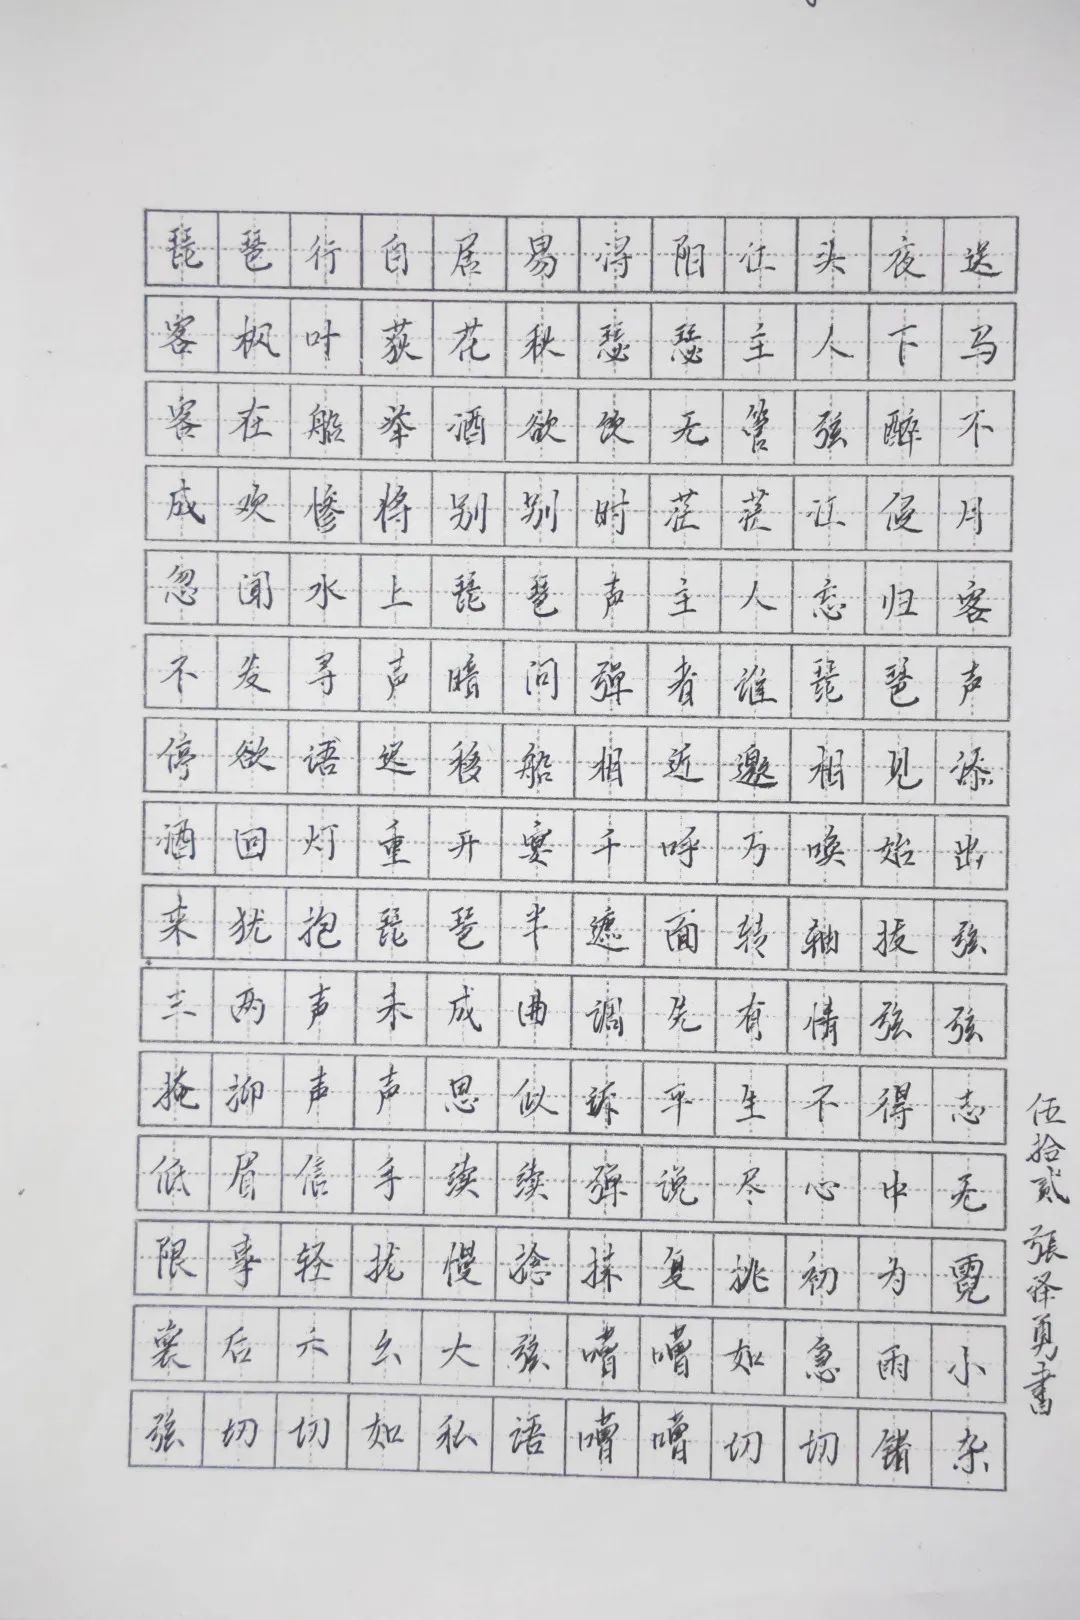 琵琶行白居易浔阳江头夜送
客枫叶荻花秋瑟瑟主人下马
客在船举酒欲饮无管弦醉不
成欢惨将别别时茫茫江浸月
忽闻水上琵琶声主人忘归客
不发寻声暗问弹者谁琵琶声
停欲语迟移船相近邀相见添
酒回灯重开宴千呼万唤始出
来犹抱琵琶半遮面转轴拨弦
三两声未成曲调先有情弦弦
掩抑声声思似诉平生不得志
低眉信手续续弹说尽心中无
限事轻拢慢捻抹复挑初为霓
裳后六幺大弦嘈嘈如急雨小
弦切切如私语嘈嘈切切错杂
伍拾贰 張泽勇書